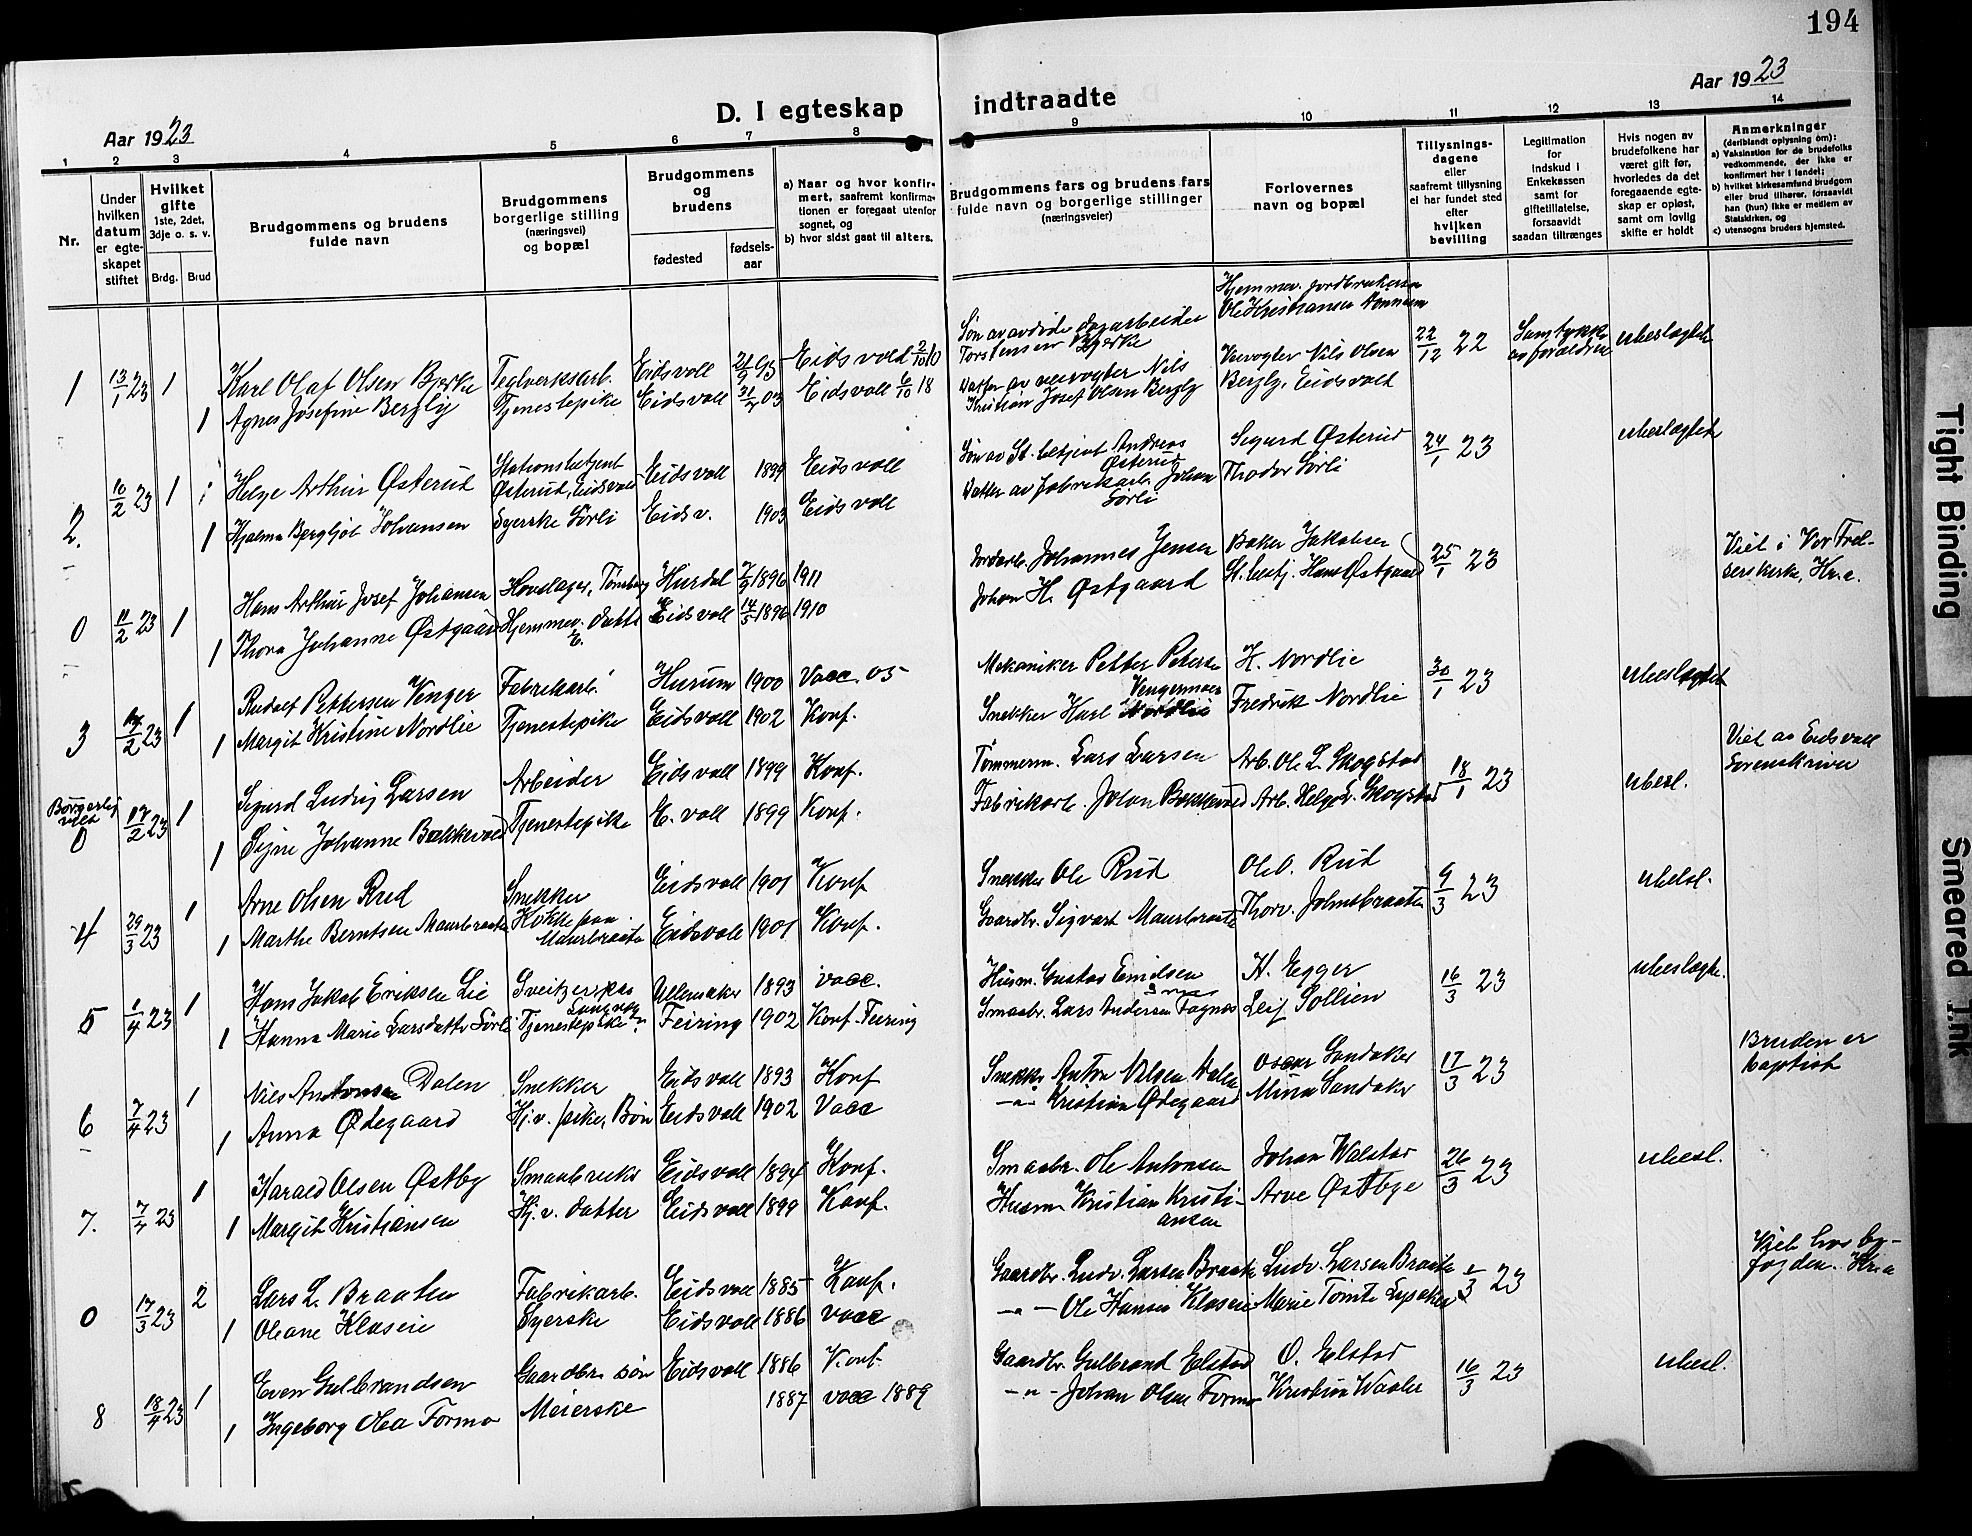 194
Aar 1923
D. I egteskap indtraadte
Aar 1923
1 2 3 4 5 6 7 8 9 10 11 12 13 14
Nr.
Under hvilken datum er egteskapet stiftet
Hvilket gifte
1ste, 2det, 3dje o. s. v.
Brdg. Brud
Brudgommens og brudens fulde navn
Brudgommens borgerlige stilling (næringsvei) og bopæl
Brudgommens og brudens
fødested
fødsels-aar
a) Naar og hvor konfirmert, saafremt konfirmationen er foregaat utenfor sognet, og
b) hvor sidst gaat til alters.
Brudgommens fars og brudens fars fulde navn og borgerlige stillinger (næringsveier)
Forlovernes navn og bopæl
Tillysningsdagene eller saafremt tillysning ei har fundet sted efter hvilken bevilling
Legitimation for Indskud i Enkekassen samt for giftetillatelse, forsaavidt saadan tiltrænges
Hvis nogen av brudefolkene har været gift før, hvorledes da det foregaaende egteskap er opløst, samt om lovlig skifte er holdt
Anmerkninger (deriblandt oplysning om):
a) Vaksination for de brudefolks vedkommende, der ikke er konfirmert her i landet;
b) hvilket kirkesamfund brudgom eller brud tilhører, forsaavidt han (hun) ikke er medlem av Statskirken, og
c) utensogns bruders hjemsted.
1 13/1 23 1 Karl Olaf Olsen Bjerke Teglverksarb. Eidsvoll 21/9 95 Eidsvold 2/10 10 Søn av avdøde dagarbeider Torstensen Bjerke Hjemmev. jordbruker Ole Kristiansen 22/12 22 Samtykke av forældren ubeslægtet
1 Agnes Josefine Bergly Tjenestepike Eidsvoll 31/7 03 Eidsvoll 6/10 18 Datter av veivogter Nils Kristian Josef Olsen Bergly Veivogter Nils Olsen Bergly, Eidsvold
2. 10/2 23 1 Helge Arthur Østerud Stationsbetjent Østerud, Eidsvold Eidsvoll 1899 Eidsvoll Søn av St. betjent Andreas Østerud Sigurd Østerud 24/1 23 ubeslægtet
1 Hjalma Bergljot Johansen Syerske Sørli Eidsv. 1903 Eidsvoll Datter av fabrikarb. Johan Sørli Thodor Sørli
0 11/2 23 1 Hans Arthur Josef Johansen Hovslager, Tønsberg Hurdal 7/9 1896 1911 Jordarb. Johannes Jensen Baker Jakobsen 25/1 23 Viet i Vor Frelserskirke, Kr.a.
1 Thora Johanne Østgaard Hjemmev. datter E. Eidsvoll 14/5 1896 1910 Johan H. Østgaard St. betj. Hans Østgaard
3 17/2 23 1 Rudolf Pettersen Venger Fabrikarb. Hurum 1900 Vacc. 05 Mekaniker Petter Petersen Vengermoer H. Nordlie 30/1 23 ubeslægtet
1 Margit Kristine Nordlie Tjenestepike Eidsvoll 1902 Konf. Snekker Karl Nordlie Fredrik Nordlie
Borgerlig viet
0 17/2 23 1 Sigurd Ludvig Larsen Arbeider Eidsvoll 1899 Konf. Tømmerm. Lars Larsen Arb. Ole L. Skogstad 18/1 23 ubesl. Viet av Eidsvoll Sorenskriver
1 Signe Johanne Bækkevold Tjenestepike E. voll 1899 Konf. Fabrikarb. Johan Bækkevold Arb. Helge L. Skogstad
4 29/3 23 1 Arne Olsen Rud Snekker Eidsvoll 1901 Konf Snekker Ole Rud Ole O. Rud 9/3 23 ubesl.
1 Marthe Berntsen Maurbraaten Kokke paa Maurbraaten Eidsvoll 1901 Konf. Gaardbr. Sigvart Maurbraaten Thorv. Johnsbraaten
5 1/4 23 1 Hans Jakob Eriksen Lie Sveitzer paa Ullensaker 1893 vacc. Husm. Gustav Emilsen H. Egger 16/3 23 ubeslægte.
1 Hanna Marie Larsdatter Sørli Tjenestepike Feiring 1902 Konf. Feiring Smaabr. Lars Andersen Fagnes Leif Sollien
6 7/4 23 1 Nils Antonsen Dalen Snekker Eidsvoll 1893 Konf Snekker Anton Nilsen Dalen Oscar Sandaker 17/3 23 Bruden er baptist
1 Anna Ødegaard Hj.v. pike, Bøn Eidsvoll 1902 Vacc -"- Kristian Ødegaard Mina Sandaker
7. 7/4 23 1 Harald Olsen Østby Smaabruker Eidsvoll 1894 Konf. Smaabr. Ole Antonsen Johan Walstad 26/3 23 ubesl.
1 Margit Kristiansen Hj.v. datter Eidsvoll 1899 Konf. Husm. Kristian Kristiansen Arve Østbye
0 17/3 23 2 Lars L. Braathen Fabrikarb. Eidsvoll 1885 Konf. Gaardbr. Ludv. Larsen Braate Ludv. Larsen Braate 1/3 23 Viet hos byfogden. Kr.a
1 Oleane Klæseie Syerske Eidsvoll 1886 vacc -"- Ole Hansen Klæseie Marie Tømte Lysaker
8 18/4 23 1 Even Gulbrandsen Gaardbr. søn Eidsvoll 1886 Konf. Gaardbr. Gulbrand Elstad O. Elstad 16/3 23 ubesl.
1 Ingeborg Olea Formo Meierske 1887 vacc 1889 -"- Johan Olsen Formo Kristian Waaler
Tight Binding
Smeared Ink